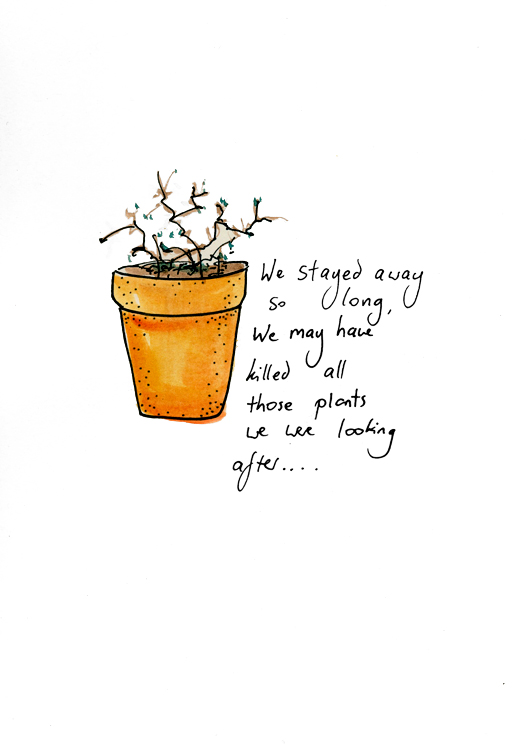 We stayed away
so long,
We may have
killed all
those plants
we were looking
after....